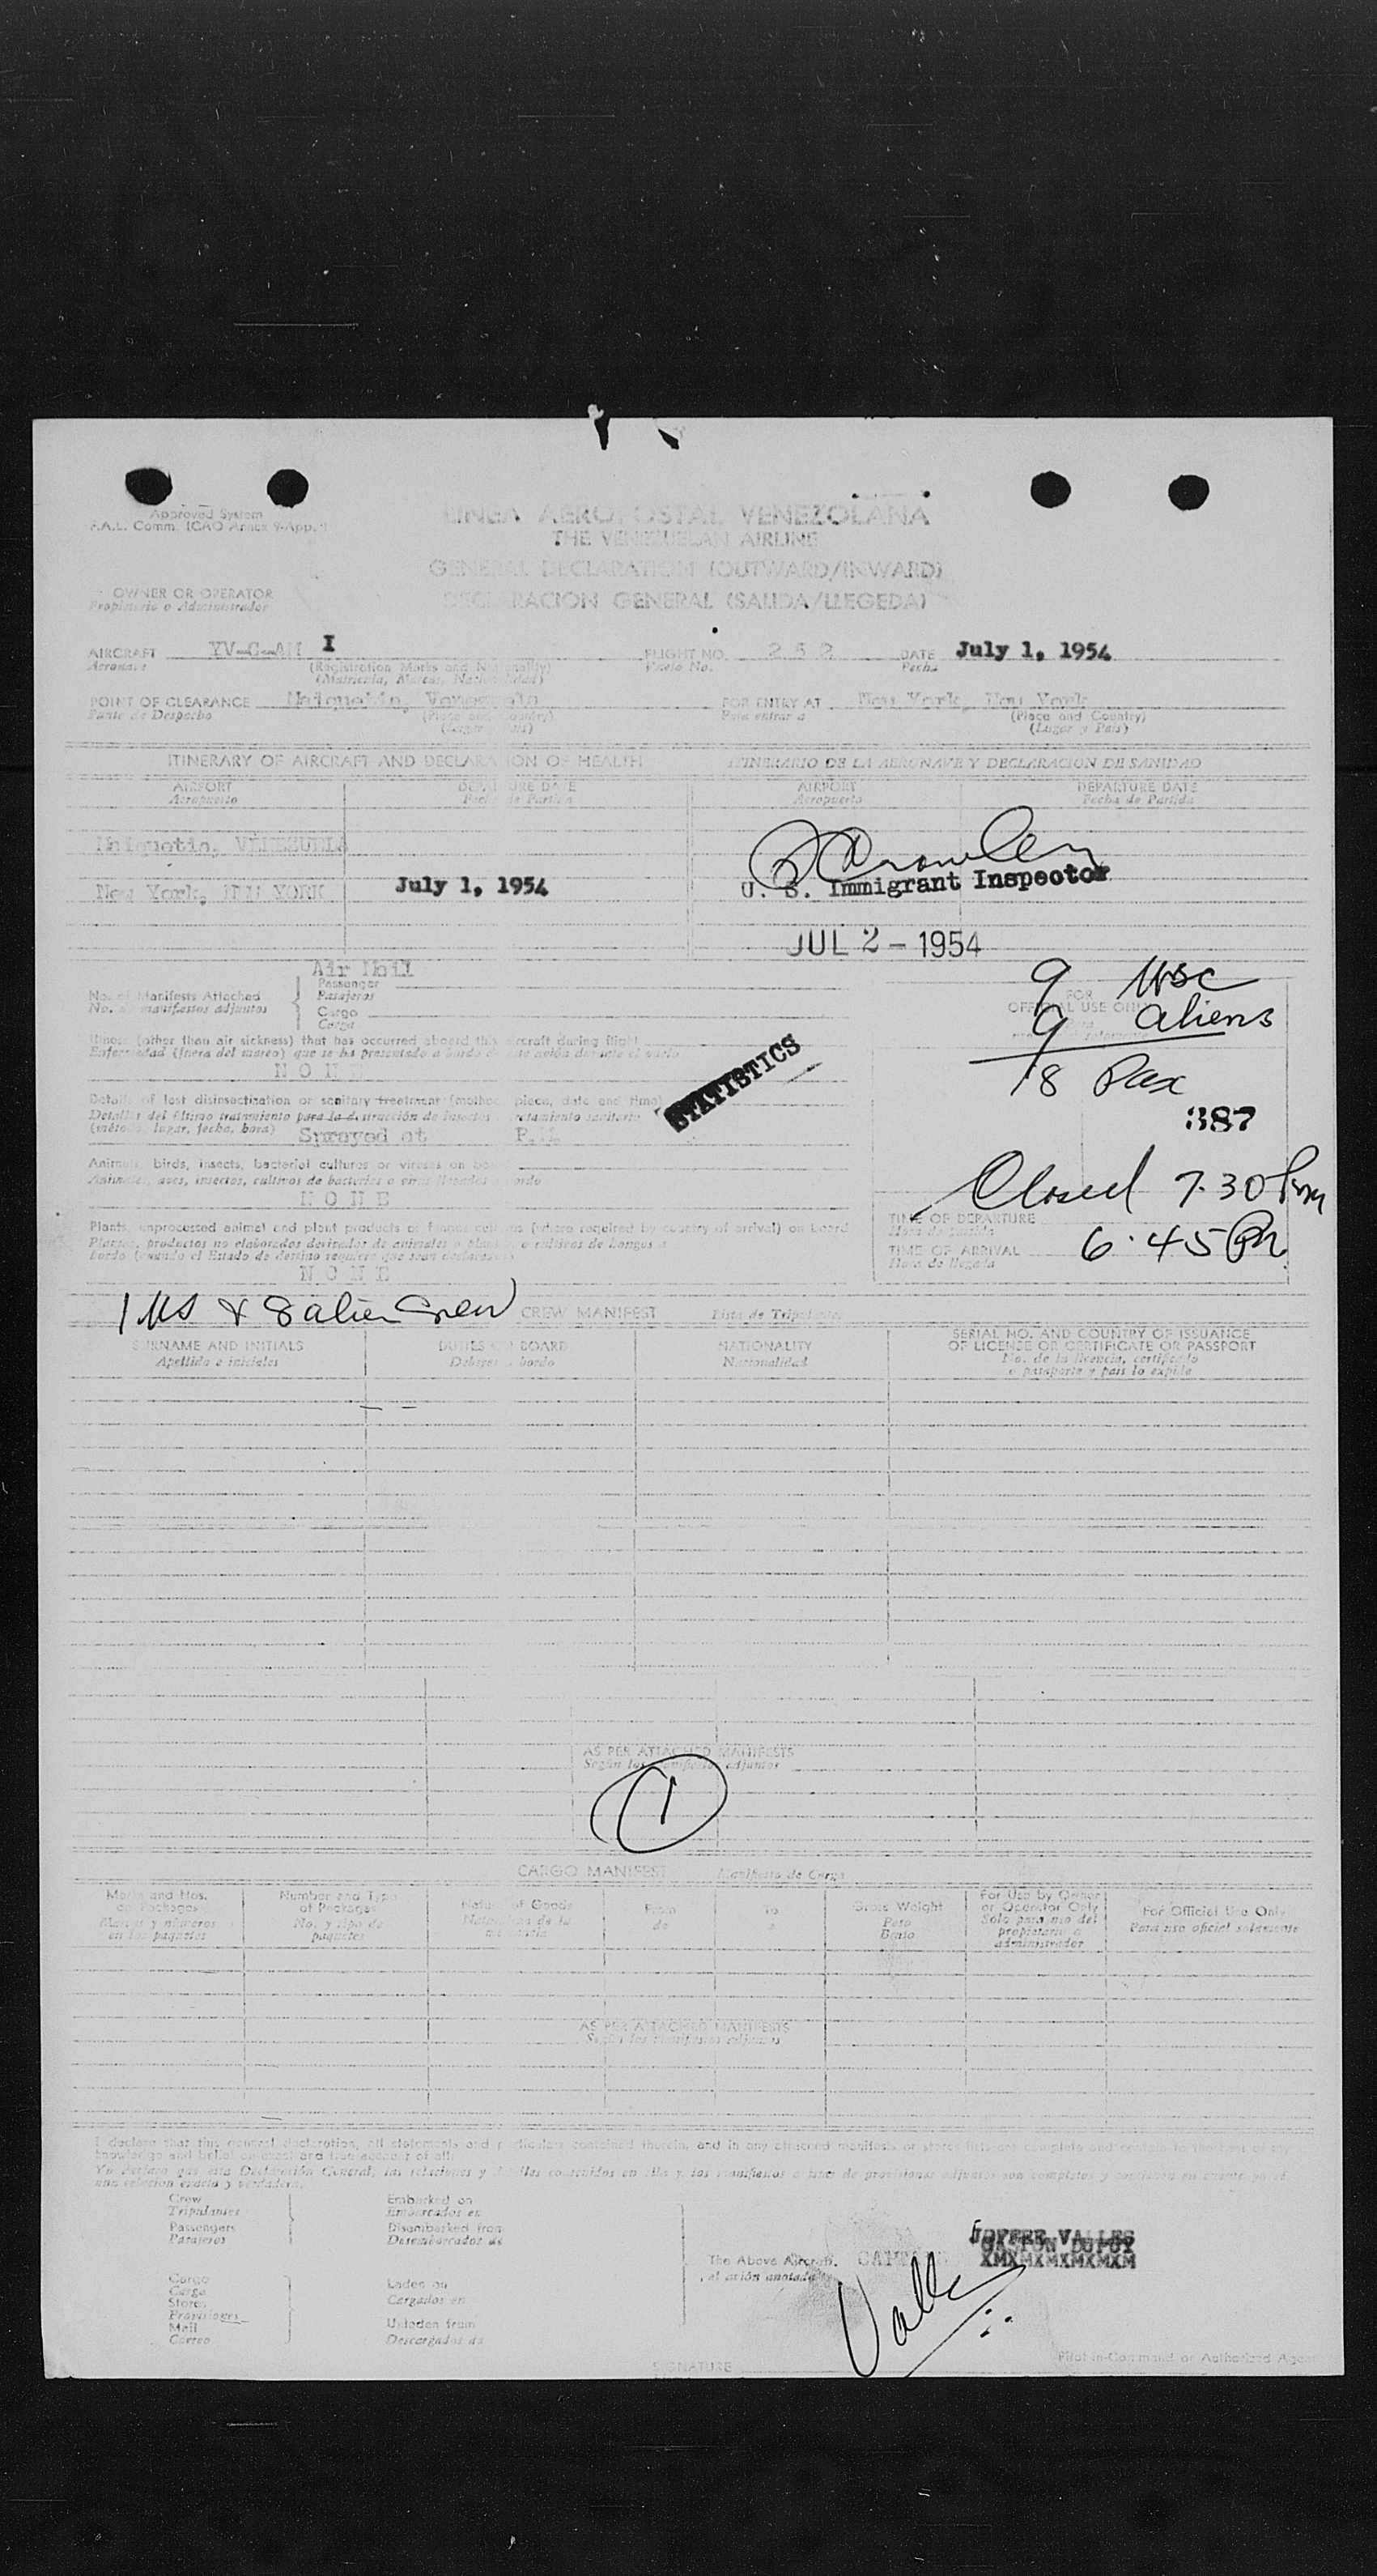 Approved System
F.A.L. Comm. (ICAO Annex 9-App.
LINEA AEROPOSTAL VENEZOLANA
THE VENEZUELAN AIRLINE
GENERAL DECLARATION (OUTWARD/INWARD)
DECLARACION GENERAL (SALIDA/LLEGEDA)
OWNER OR OPERATOR
Propietario o Administrador
AIRCRAFT YV-C-AM I FLIGHT NO. 252 DATE July 1, 1954
Aeronave (Registration Marks and Nationality) Vuelo No. Fecha
(Matricula, Marcas, Nacionalidad)
POINT OF CLEARANCE Maiquetia, Venezuela FOR ENTRY AT New York, New York
Punto de Despacho (Place and Country) Para entrar a (Place and Country)
(Lugar y Pais) (Lugar y Pais)
ITINERARY OF AIRCRAFT AND DECLARATION OF HEALTH ITINERARIO DE LA AERONAVE Y DECLARACION DE SANIDAD
AIRPORT DEPARTURE DATE AIRPORT DEPARTURE DATE
Aeropuerto Fecha de Partida Aeropuerto Fecha de Partida
Maiquetia, VENEZUELA
New York, NEW YORK July 1, 1954 U. S. Immigrant Inspector
JUL 2 - 1954
Air Mail
No. of Manifests Attached Passenger
No. de manifiestos adjuntos Pasajeros
Cargo
Carga
9 USC
FOR
OFFICIAL USE ONLY
9 aliens
18 Pax
387
Illness (other than air sickness) that has occurred aboard this aircraft during flight
Enfermedad (fuera del mareo) que se ha presentado a bordo de este avión durante el vuelo
NONE
STATISTICS
Details of last disinsectization or sanitary treatment (method, place, date and time)
Detalles del último tratamiento para la destrucción de insectos o tratamiento sanitario
(método, lugar, fecha, hora) Sprayed at
Animals, birds, insects, bacterial cultures or viruses on board
Animales, aves, insectos, cultivos de bacterias o virus llevados a bordo
NONE
Closed 7.30 Pm
Plants, unprocessed animal and plant products or fungus cultures (where required by country of arrival) on board
Plantas, productos no elaborados derivados de animales o plantas o cultivos de hongos a
bordo (cuando el Estado de destino requiere que sean declarados)
NONE
TIME OF DEPARTURE
Hora de partida
TIME OF ARRIVAL 6.45 Pm
Hora de llegada
1 US & 8 alien Crew CREW MANIFEST Lista de Tripulantes
SURNAME AND INITIALS DUTIES ON BOARD NATIONALITY SERIAL NO. AND COUNTRY OF ISSUANCE
OF LICENSE OR CERTIFICATE OR PASSPORT
Apellido e iniciales Deberes a bordo Nacionalidad No. de la licencia, certificado
o pasaporte y pais lo expide
AS PER ATTACHED MANIFESTS
Según los manifiestos adjuntos
1
CARGO MANIFEST Manifiesto de Carga
Marks and Nos. Number and Type Nature of Goods From To Gross Weight For Use by Owner For Official Use Only
on Packages of Packages or Operator Only
Marcas y números No. y tipo de Naturaleza de la de a Peso Solo para uso del Para uso oficial solamente
en los paquetes paquetes Bruto propietario o
administrador
AS PER ATTACHED MANIFESTS
Según los manifiestos adjuntos
I declare that this general declaration, all statements and particulars contained therein, and in any attached manifests or stores lists are complete and
knowledge and belief an exact and true account of all:
Crew Embarked on
Tripulantes Embarcados en
Passengers Disembarked from
Pasajeros Desembarcados de
JOFFRE VALLES
GASTON DUPUY
XMXMXMXMXMXM
The Above Aircraft.
el avión anotado
Cargo Laden on
Carga Cargados en
Stores
Provisiones
Mail Unladen from
Correo Descargados de
Valles
SIGNATURE Pilot-in-Command or Authorized Agent